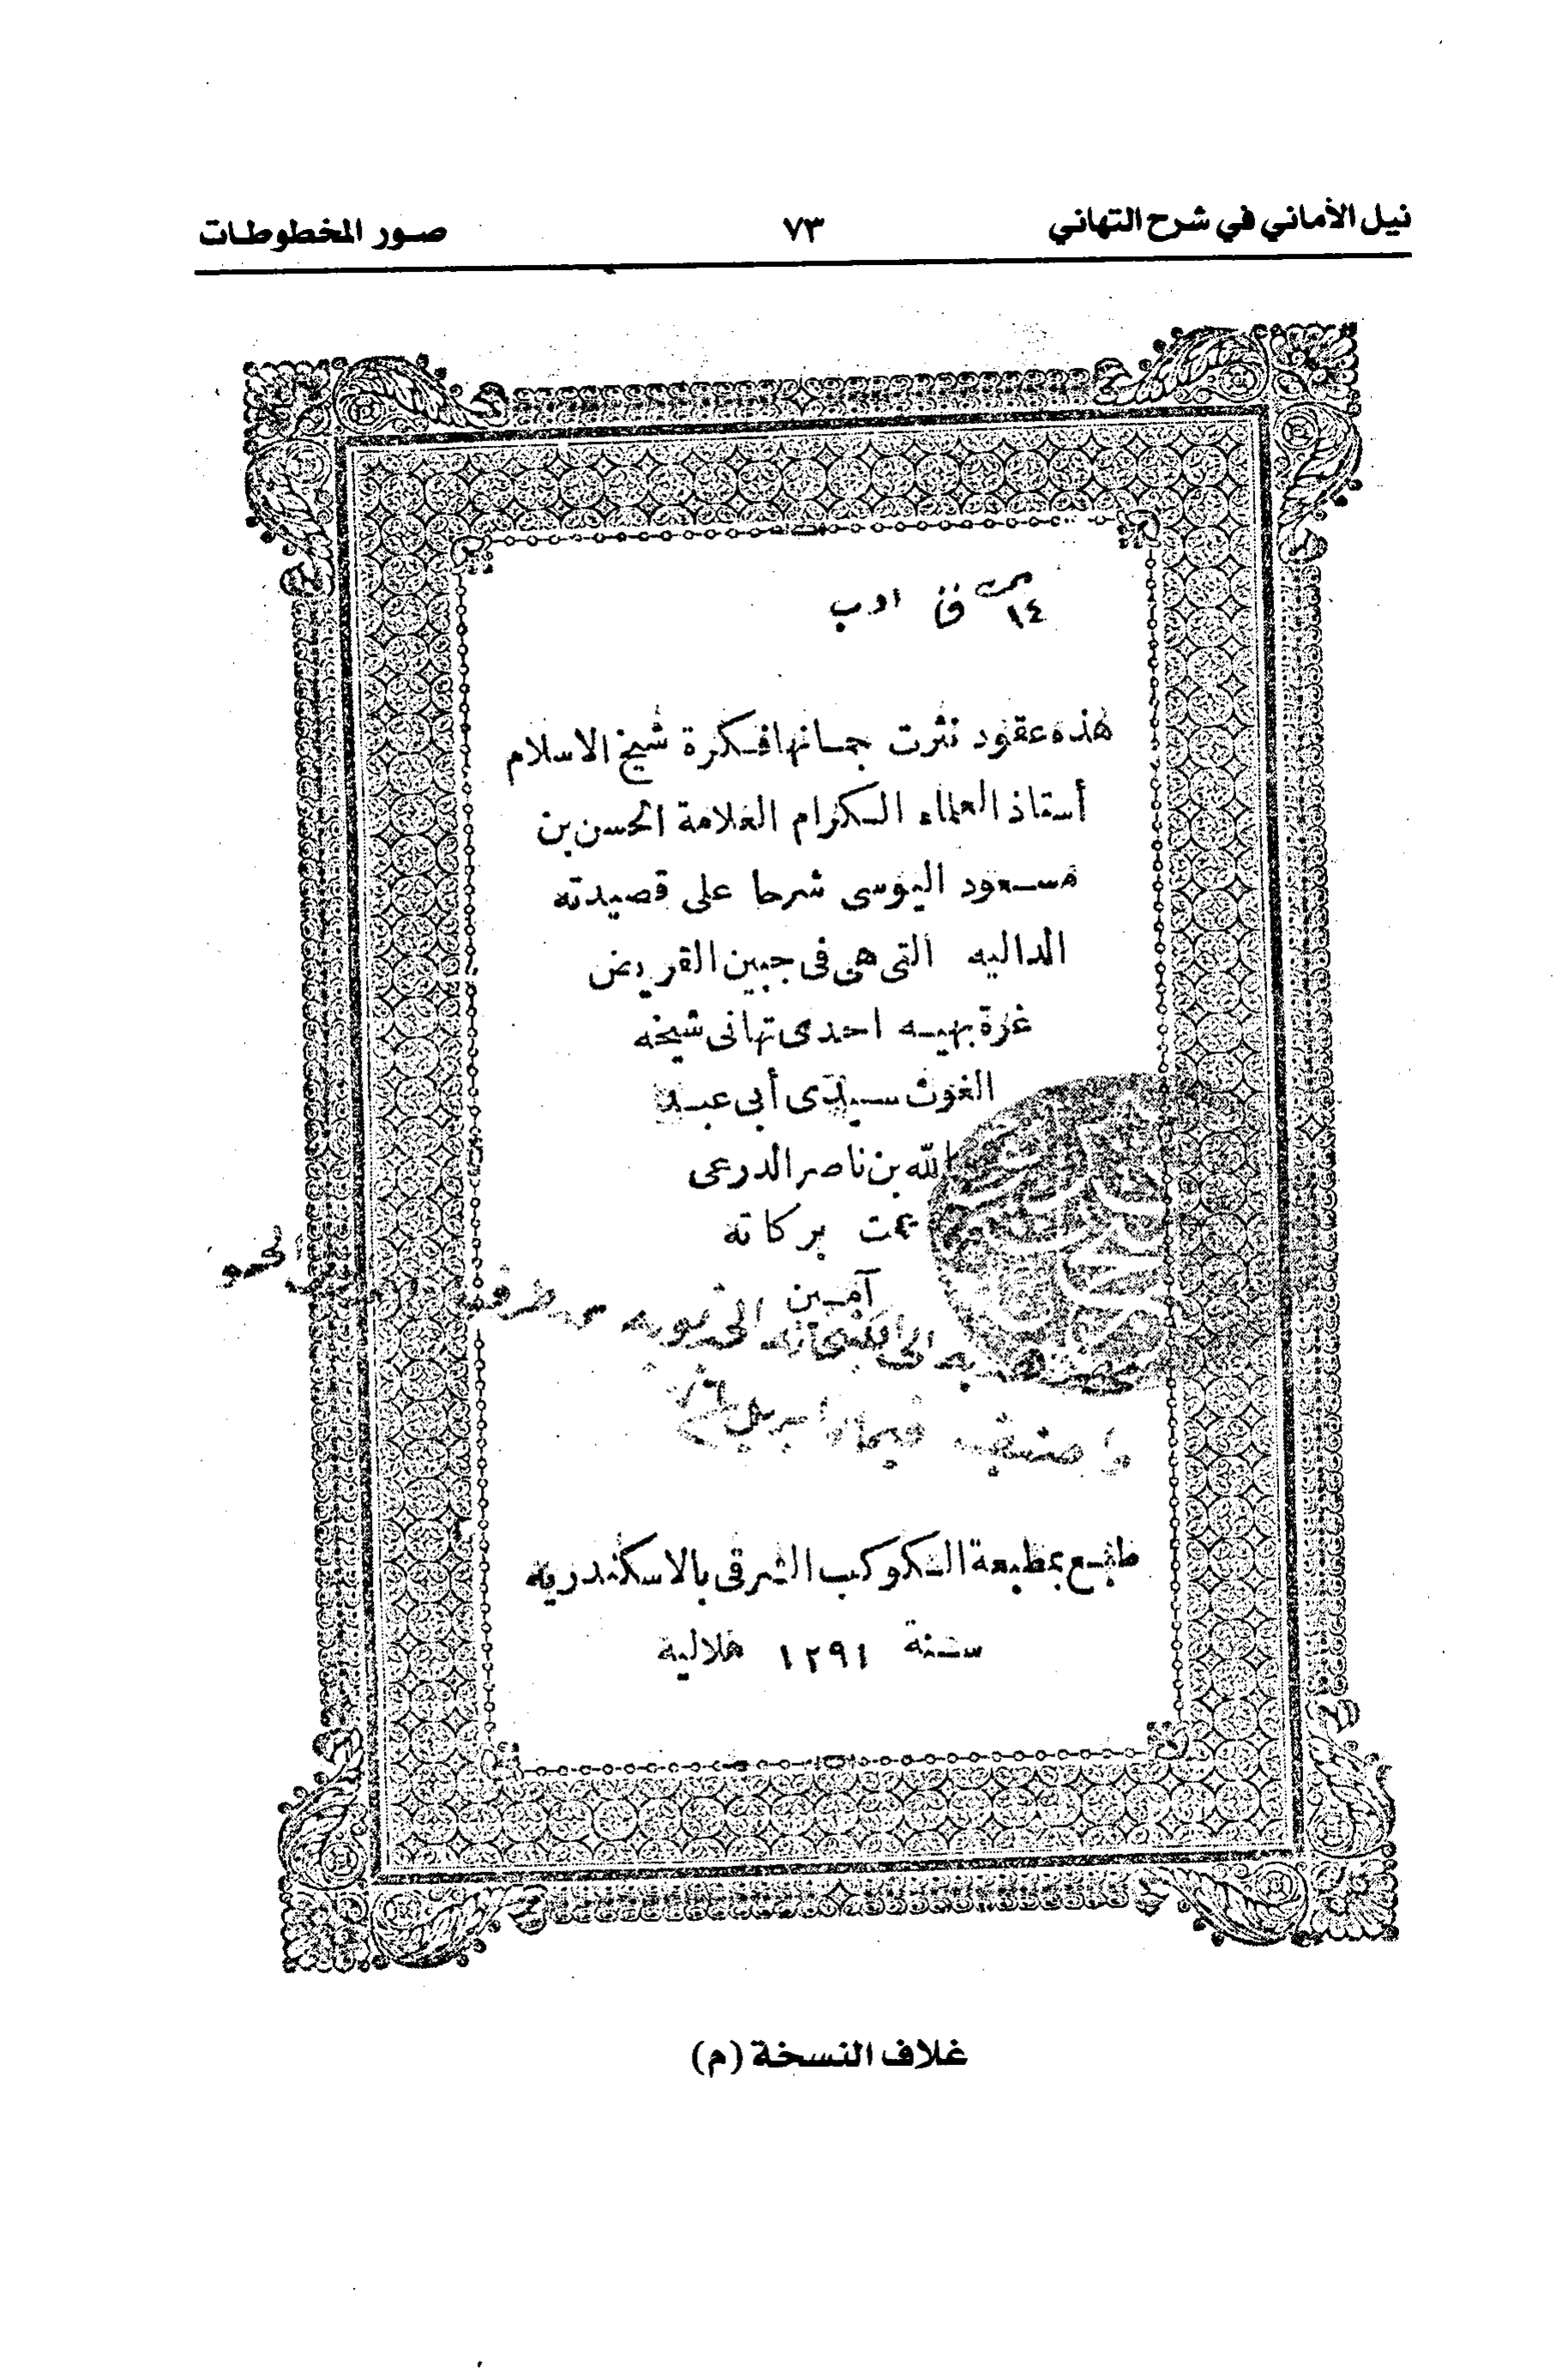 نيل الأماني في شرح التهاني ٧٣ صور المخطوطات
١٤ ق ادب
هذه عقود نثرت جمانها فكرة شيخ الاسلام
أستاذ العلماء الكرام العلامة الحسن بن
مسعود اليوسى شرحا على قصيدته
الداليه التى هى فى جبين القريض
غرة بهيه احدى تهانى شيخه
الغوث سيدى أبى عبد
الله بن ناصر الدرعى
عمت بركاته
آمين
الى الكتبخانه الخديويه
واضيف فى ابريل
طبع بمطبعة الكوكب الشرقى بالاسكندريه
سنة ١٢٩١ هلالية
غلاف النسخة (م)